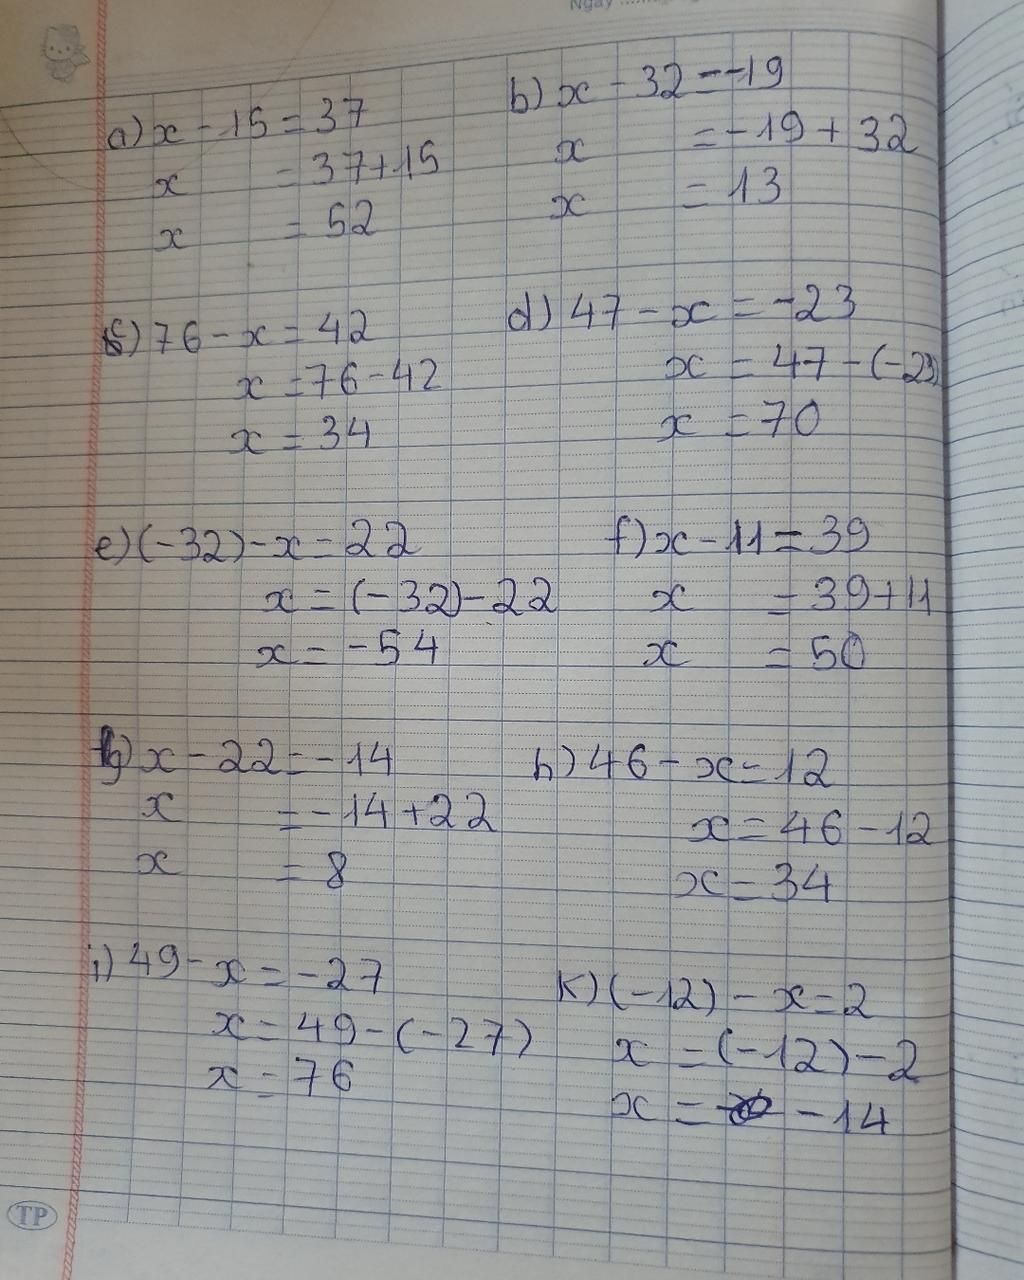 Ngày
a) x - 15 = 37
x = 37 + 15
x = 52
b) x - 32 = -19
x = -19 + 32
x = 13
c) 76 - x = 42
x = 76 - 42
x = 34
d) 47 - x = -23
x = 47 - (-23)
x = 70
e) (-32) - x = 22
x = (-32) - 22
x = -54
f) x - 11 = 39
x = 39 + 11
x = 50
g) x - 22 = -14
x = -14 + 22
x = 8
h) 46 - x = 12
x = 46 - 12
x = 34
i) 49 - x = -27
x = 49 - (-27)
x = 76
k) (-12) - x = 2
x = (-12) - 2
x = -14
TP